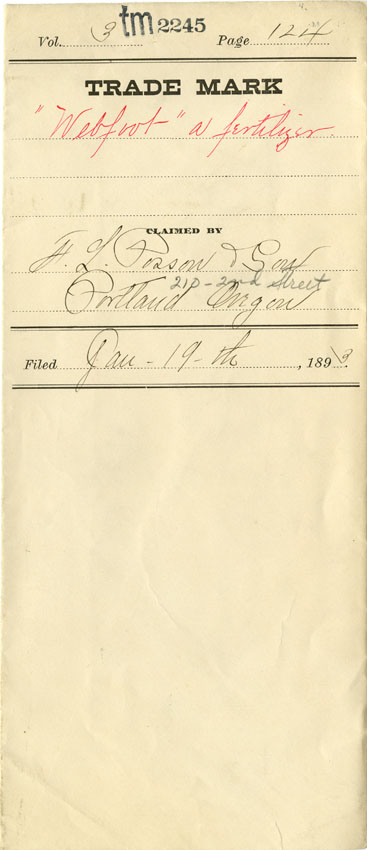 Vol. 3 tm 2245 Page 124
TRADE MARK
"Webfoot" a fertilizer.
CLAIMED BY
F. L. Posson & Son
210 - 2nd Street
Portland Oregon
Filed Jan - 19 - th, 1893.